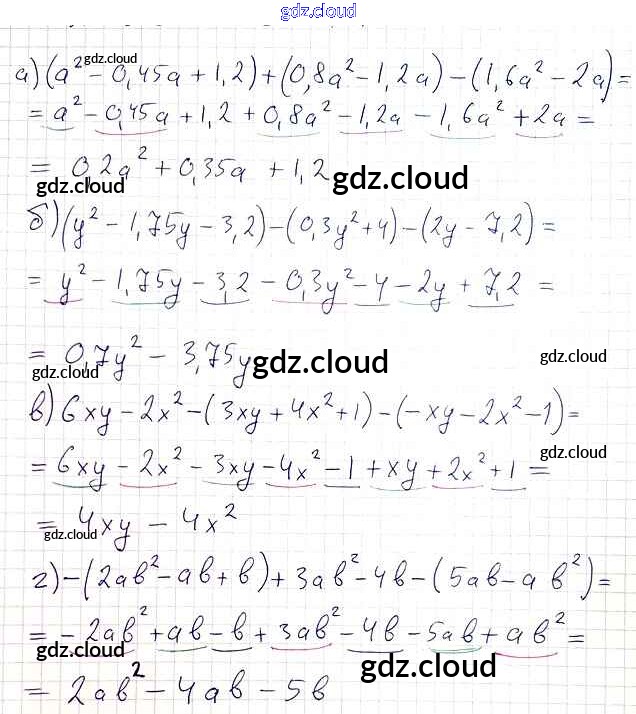 gdz.cloud
gdz.cloud
а) (a² - 0,45a + 1,2) + (0,8a² - 1,2a) - (1,6a² - 2a) =
= a² - 0,45a + 1,2 + 0,8a² - 1,2a - 1,6a² + 2a =
= 0,2a² + 0,35a + 1,2
gdz.cloud gdz.cloud gdz.cloud
б) (y² - 1,75y - 3,2) - (0,3y² + 4) - (2y - 7,2) =
= y² - 1,75y - 3,2 - 0,3y² - 4 - 2y + 7,2 =
= 0,7y² - 3,75y
gdz.cloud gdz.cloud gdz.cloud
в) 6xy - 2x² - (3xy + 4x² + 1) - (-xy - 2x² - 1) =
gdz.cloud
= 6xy - 2x² - 3xy - 4x² - 1 + xy + 2x² + 1 =
= 4xy - 4x²
gdz.cloud
г) -(2ab² - ab + b) + 3ab² - 4b - (5ab - ab²) =
= -2ab² + ab - b + 3ab² - 4b - 5ab + ab² =
gdz.cloud gdz.cloud gdz.cloud
= 2ab² - 4ab - 5b